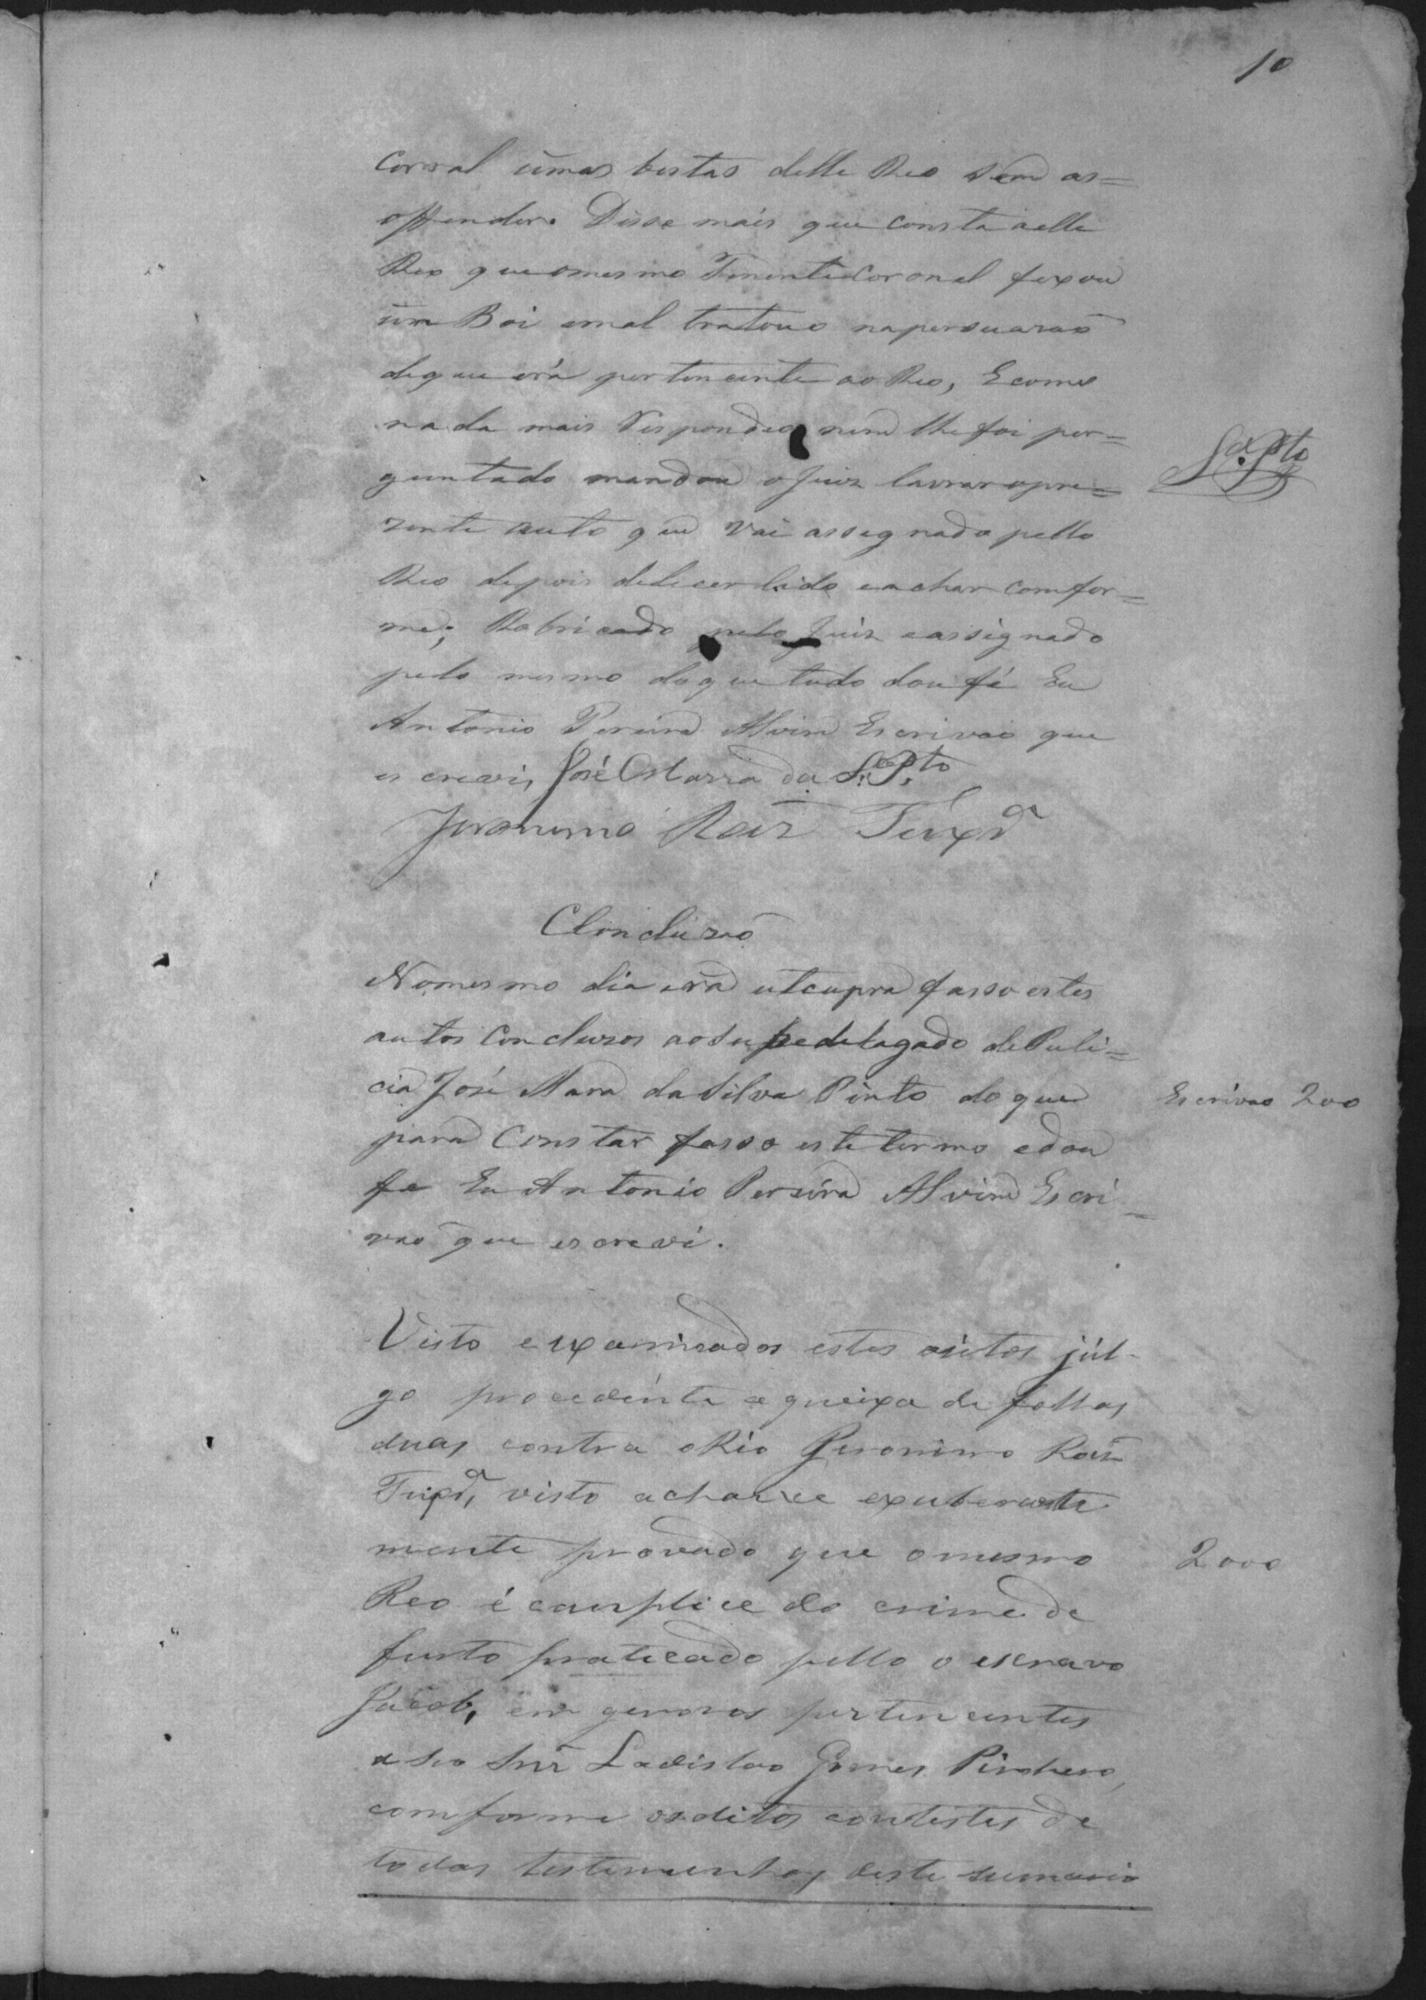 10
corral úmas bestas delle Reo sem as=
offender. Disse mais que consta aelle
Reo queomesmo Tenentecoronel fexou
úm Boi emal tratouo napersuazaõ
deque érà pertencente ao Reo, Ecomo
nada mais Respondeo nem lhe foi per=
guntado mandou oJuiz lavrar opre=
zente auto que vai assegnado pello
Reo depois delhecer lido eachar comfor=
me; Robricado pelo Juiz eassignado
pelo mesmo doque tudo dou fé Eu
Antonio Pereira Alvim Escrivaõ que
escrevi, José Maria da S.ª P.to
Jeronimo Roiz Teixr.ª
S.ª P.to
Conclusaõ
Nomesmo dia erà utcupra fasso estes
autos Concluzos ao Supedelagado de Puli=
cia José Maria daSilva Pinto do que
para Constar fasso este termo edou
fe Eu Antonio Pereira Alvim Escri=
vaõ que escrevi.
Escrivaõ 200
Visto e examinados estes autos júl-
go procedente a queixa de folhas
duas contra oRéo Jeronimo Roiz
Teixr.ª, visto acharce exuberante
mente provado que omesmo
Reo é complice do crime de
furto praticado pello o escravo
Jacob, em generos pertencentes
a seo Snr Ladislao Gomes Pinheiro,
comforme osditos contestes de
todas testemunhas deste sumario
2000